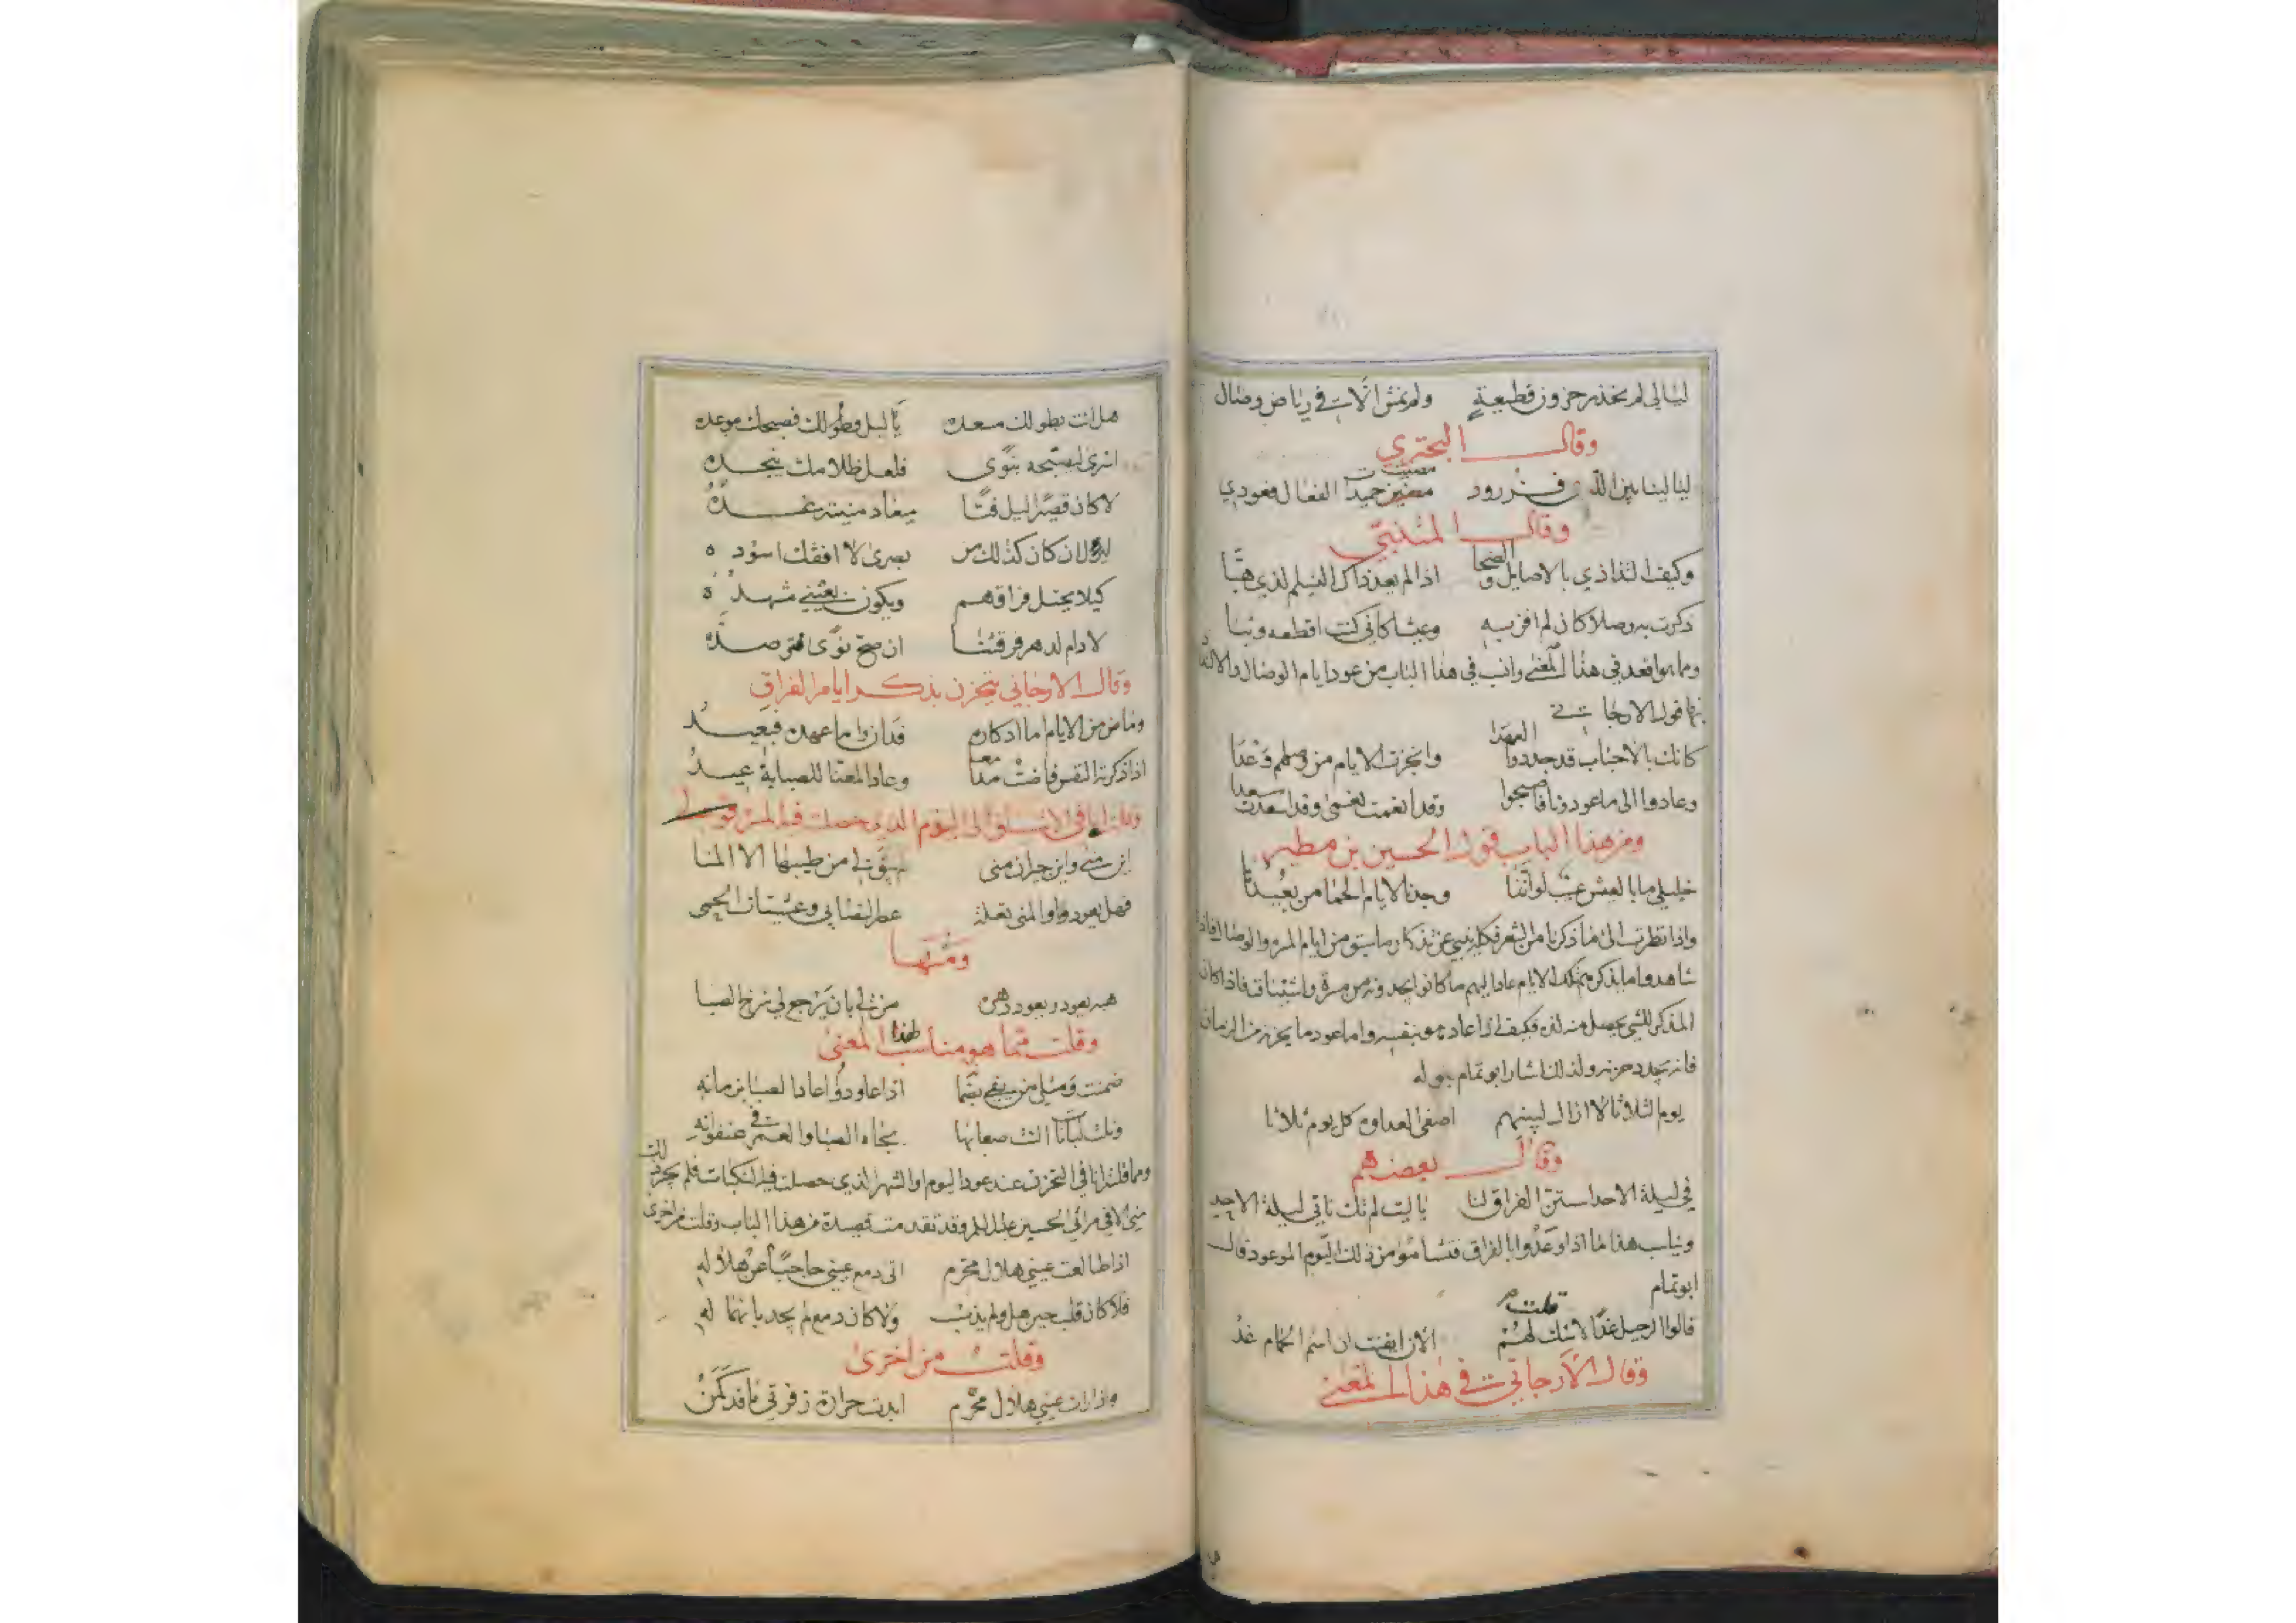 ليالي لم نحذر حزون قطيعة ولم نمش الا في رياض وصال
وقال البحتري
ليالينا بين اللوى فزرود مضيت حميدات الفعال فعودي
وقال المتنبي
وكيف التذاذي بالاصايل والضحا اذا لم يعد ذاك النسيم الذي هبا
ذكرت به وصلا كان لم افز به وعيشا كاني كنت اقطعه وثبا
وما هو اقعد في هذا المعنى وانسب في هذا الباب من عود ايام الوصال
قول الارجاني
كانك بالاحباب قد جددوا العهدا وانجزت الايام من وصلهم وعدا
وعادوا الى ما عودونا فاصبحوا وقد انعمت نعمى وقد اسعدت سعدا
ومن هذا الباب قول الحسين بن مطير
خليلي ما بالعيش عتب لو اننا وجدنا لايام الحما من يعيدها
واذا نظرت الى ما ذكرنا من الشعر فكله ينبي عن تذكار ما سبق من ايام المسره والوصال فاذا
شاهدوا ما يذكرهم تلك الايام عاد اليهم ما كانوا يجدونه من مسرة واشتياق فاذا كان
المذكر للشي يحصل منه لذه فكيف اذا عاد هو بنفسه واما عود ما يحزنه من الزمان
فانه يجدد حزنه ولذلك اشار ابو تمام بقوله
يوم الثلاثا لا ازال لبينهم اصفى العداوه كل يوم ثلاثا
وقال بعضهم
في ليلة الاحد استن الفراق لنا يا ليت لم تك تاتي ليلة الاحد
ويناسب هذا لما اذا وعدوا بالفراق فتشاموا من ذلك اليوم الموعود قال
ابو تمام
قالوا الرحيل غدا لا شك قلت لهم الان ايقنت ان اسم الحمام غد
وقال الارجاني في هذا المعنى
هل انت بطولك مسعده يا ليل فطولك فصبحك موعده
اسرى ليصبحه بنوى فلعل ظلامك ينجده
لا كان قصير الليل فتا ميعاد منيته غده
ان كان كذلك من بصرى لا افقك اسوده
كيلا يحتل فراقهم ويكون بعيني مشهده
لا دام لدهر فرقتنا ان صح نوى
وقال الارجاني يتحزن بذكر ايام الفراق
وماض من الايام اما ادكاره فدان واما عهده فبعيد
اذا ذكرته النفس فاضت مدامعا وعاد المعنا للصبابة عيد
وقلت انا في الاشتياق الى اليوم الذي حصلت فيه المسره قولي
اين منى واين جيران منى لم يبق لي من طيبها الا المنا
فهل يعود والمنى تعلة عصر التصابي وعشيات الحمى
ومنها
هبه يعود ويعود دهره من لي بان يرجع لي شرخ الصبا
وقلت مما هو مناسب لهذا المعنى
ضمنت ومثلي من يفي بضما اذا عاودوا عاد الصبا بزمانه
ونلت لبانا الت صعابها بجاه الصبا والعمر في عنفوانه
ومما قلت انا في التحزن عند عود اليوم او الشهر الذي حصلت فيه النكبات فلم يجر ذلك
مني الا في مراثي الحسين عليه السلام وقد تقدمت قصيدة من هذا الباب وقلت من اخرى
اذا طالعت عيني هلال محرم اتى دمع عيني حاجبا عن هلاله
فلا كان قلب حين هل ولم يذب ولا كان دمع لم يجد بانهماله
وقلت من اخرى
واذا رات عيني هلال محرم ابدت حرارة زفرتي ما قد كمن